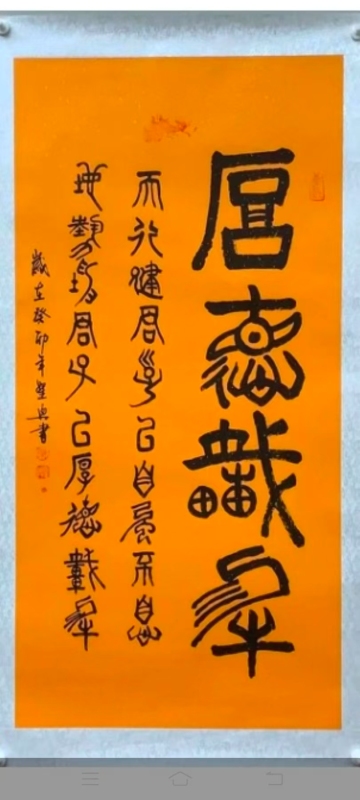 厚悳載物
天行健君子以自強不息
地勢坤君子以厚德載物
歲在癸卯年書